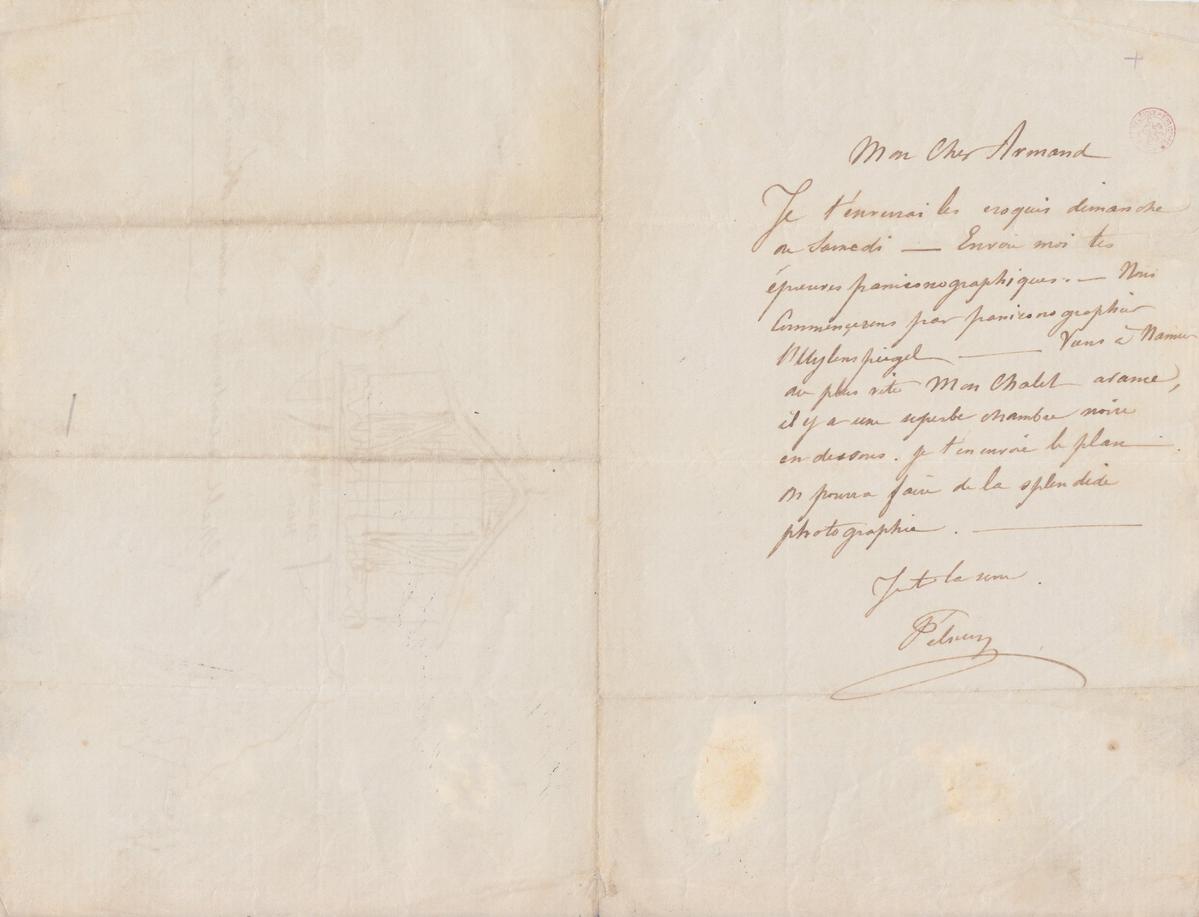 Mon Cher Armand
Je t'enverrai les croquis dimanche
ou Samedi — Envoie moi tes
épreuves paniconographiques. — Nous
Commencerons par paniconographier
l'Uylenspiegel — Viens à Namur
au plus vite Mon Chalet avance,
il y a une superbe chambre noire
en dessous. je t'en envoie le plan
on pourra faire de la splendide
photographie.
la